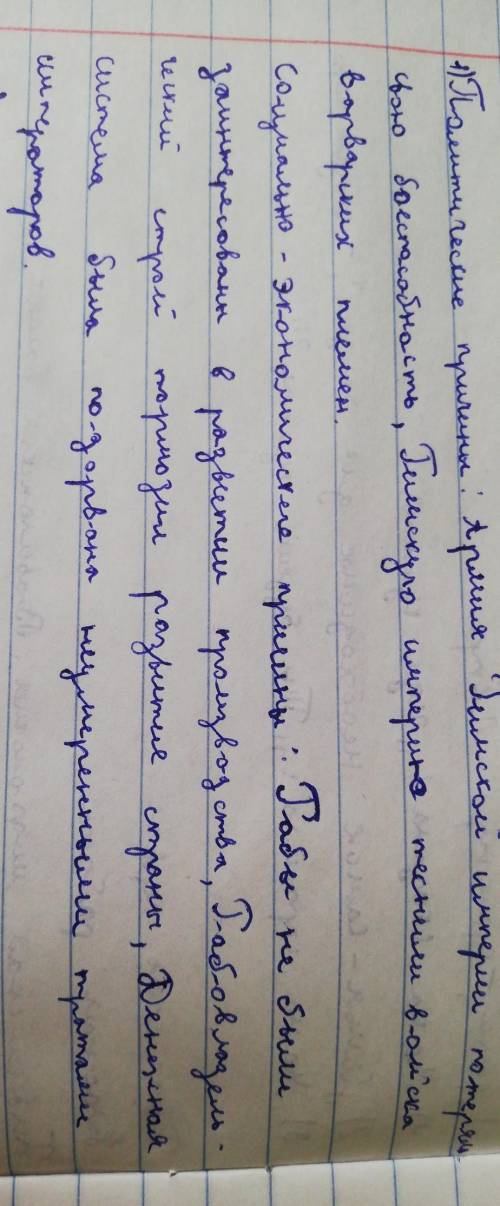 1) Политические причины: Армия Римской империи потерял-
свою боеспособность, Римскую империю теснили войска
варварских племен.
Социально-экономические причины: Рабы не были
заинтересованы в развитии производства, Рабовладель-
ческий строй тормозил развитие страны, Денежная
система была подорвана неумеренными тратами
императоров.